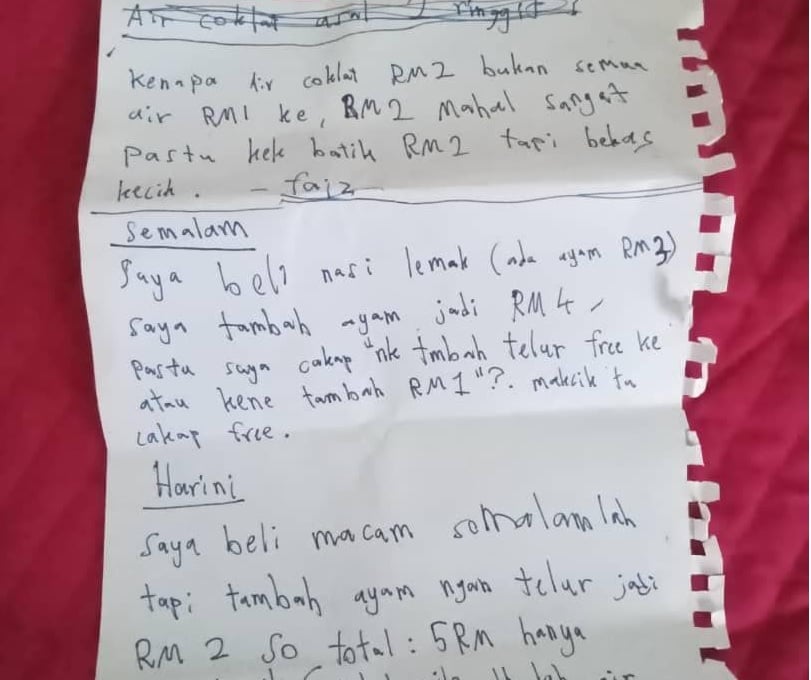 Air coklat asal 2 ringgit
Kenapa Air coklat RM2 bukan semua
air RM1 ke, RM2 mahal sangat
pastu kek batik RM2 tapi bekas
kecik. - faiz
Semalam
Saya beli nasi lemak (ada ayam RM3)
saya tambah ayam jadi RM4
pastu saya cakap "nk tmbah telur free ke
atau kene tambah RM1"?. makcik tu
cakap free.
Harini
Saya beli macam semalam lah
tapi tambah ayam ngan telur jadi
RM 2 So total : 5RM hanya
lah air